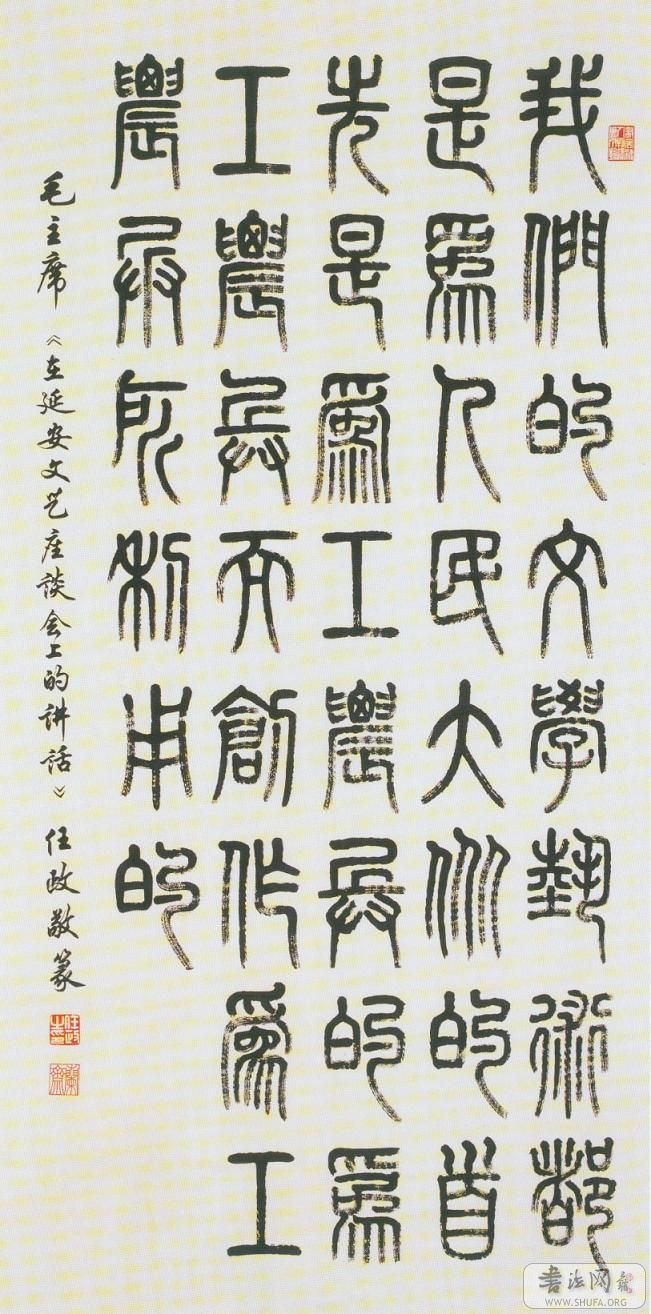 我們的文學藝術都
是為人民大众的首
先是為工農兵的為
工農兵而創作為工
農兵所利用的
毛主席《在延安文艺座談会上的讲話》任政敬篆
任政之印
書法网
WWW.SHUFA.ORG